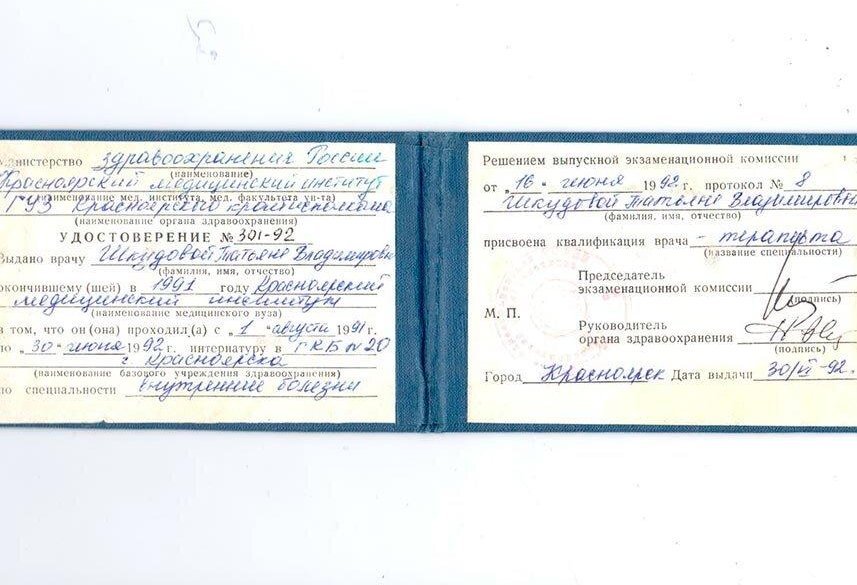 Министерство здравоохранения России
(наименование)
Красноярский медицинский институт
(наименование мед. института, мед. факультета ун-та)
ГУЗ Красноярского крайисполкома
(наименование органа здравоохранения)
УДОСТОВЕРЕНИЕ № 301-92
Выдано врачу Шкудовой Татьяне Владимировне
(фамилия, имя, отчество)
окончившему (шей) в 1991 году Красноярский
медицинский институт
(наименование медицинского вуза)
в том, что он (она) проходил (а) с „1" августа 1991 г.
по „30" июня 1992 г. интернатуру в ГКБ № 20
г. Красноярска
(наименование базового учреждения здравоохранения)
по специальности внутренние болезни
Решением выпускной экзаменационной комиссии
от „16" июня 1992 г. протокол № 8
Шкудовой Татьяне Владимировне
(фамилия, имя, отчество)
присвоена квалификация врача - терапевта
(название специальности)
Председатель
экзаменационной комиссии
(подпись)
М. П.
Руководитель
органа здравоохранения
(подпись)
Город Красноярск Дата выдачи 30/VI-92.